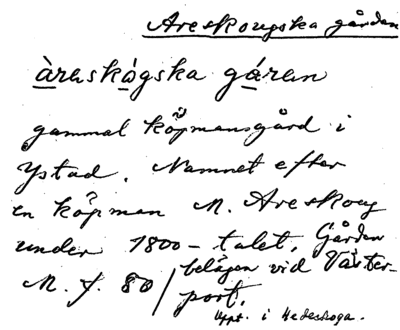 Areskougska gården
àreskógska gáren
gammal köpmansgård i
Ystad. Namnet efter
en köpman N. Areskoug
under 1800-talet. Gården
belägen vid Väster-
port.
M. f. 80
Uppt. i Hedeskoga.